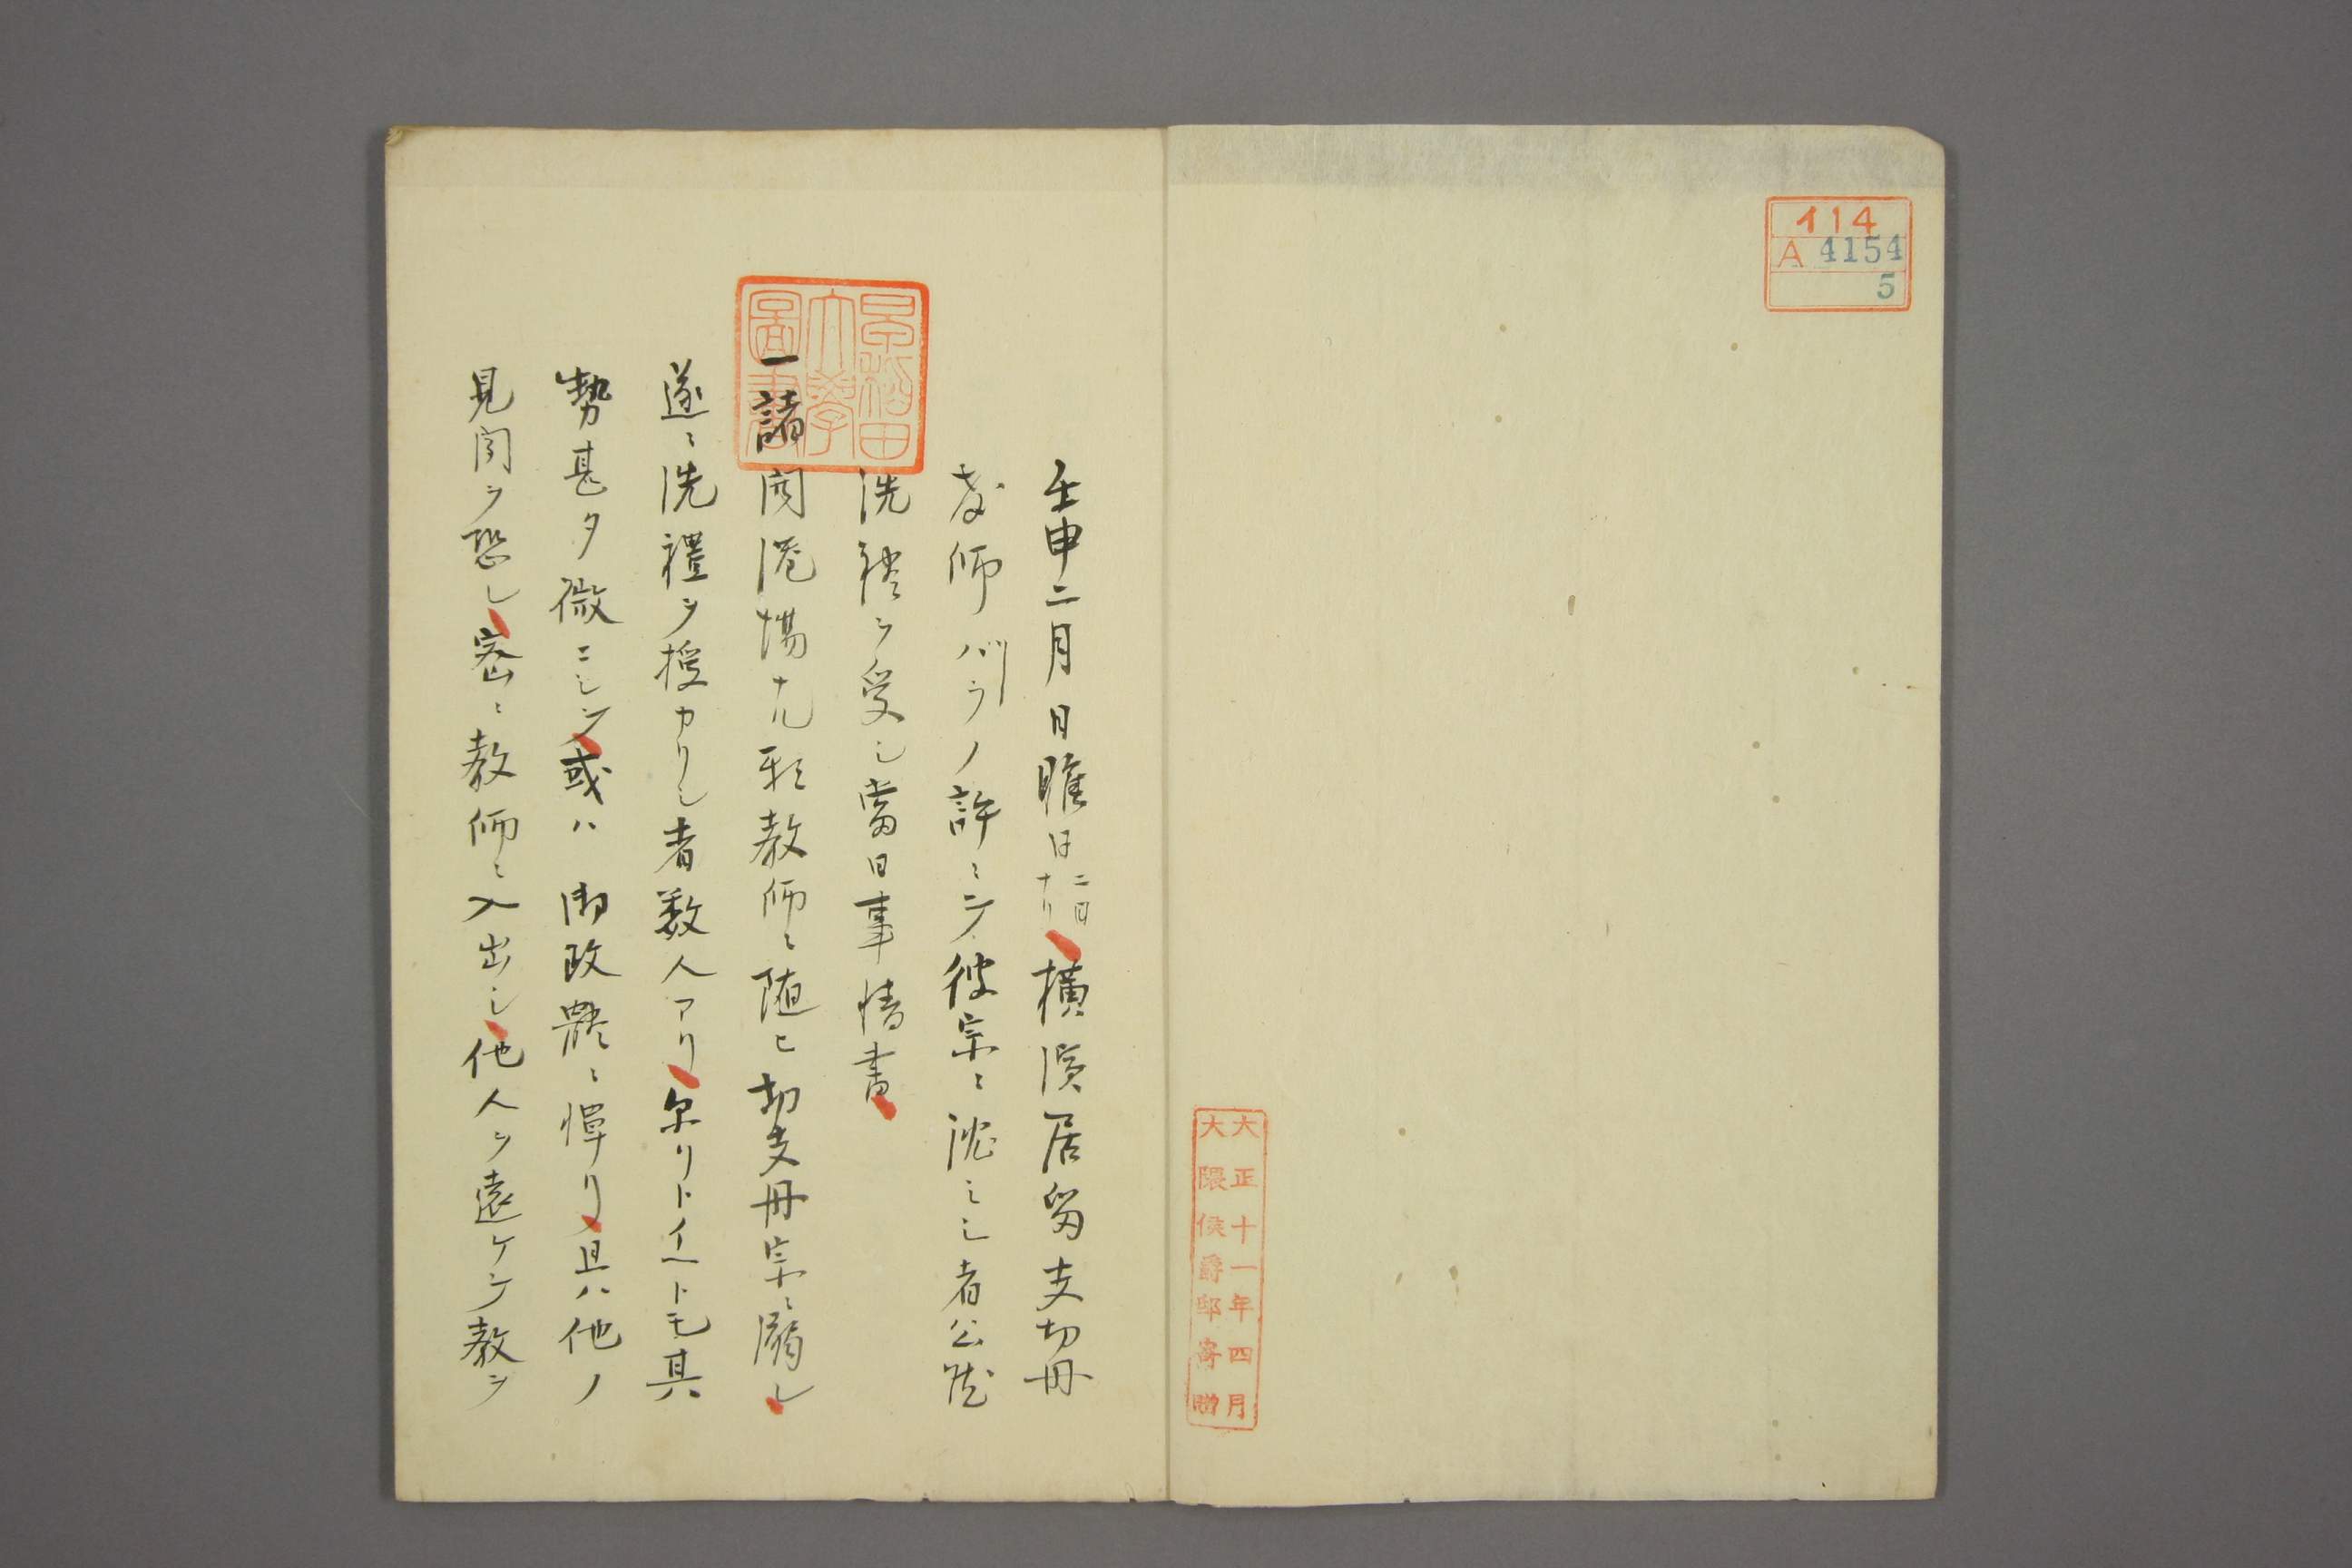 イ14
A 4154
5
大正十一年四月
大隈侯爵邸寄贈
早稲田
大學
圖書
壬申二月日睢日二日ナリ横濱居留支切丹
教師バラノ許ニテ彼宗ニ沈ミシ者公然
洗禮ヲ受シ當日事情書
一諸開港場ニ於テ教師ニ随ヒ切支丹宗ニ溺レ
遂ニ洗禮ヲ授カリシ者数人アリ尓リトイヘトモ其
勢甚タ微ニシテ或ハ御政體ニ憚リ且ハ他ノ
見聞ヲ恐レ密ニ教師ニ入出シ他人ヲ遠ケテ教ヲ